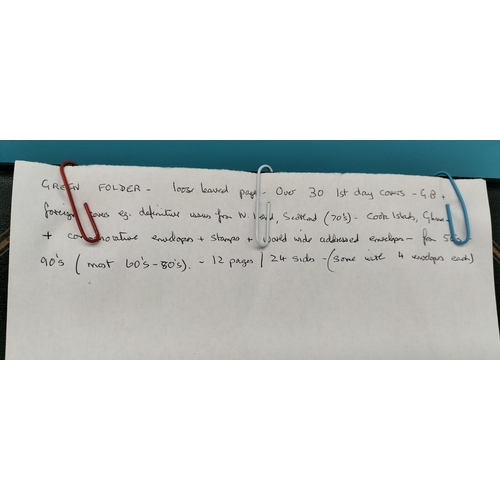 GREEN FOLDER - loose leaved pages - Over 30 1st day covers - GB +
foreign covers eg. definitive issues from N. Ireland, Scotland (70's) - Cook Islands, Ghana -
+ commemorative envelopes + stamps + world wide addressed envelopes - from 50's
90's (most 60's - 80's). - 12 pages / 24 sides - (some with 4 envelopes each)